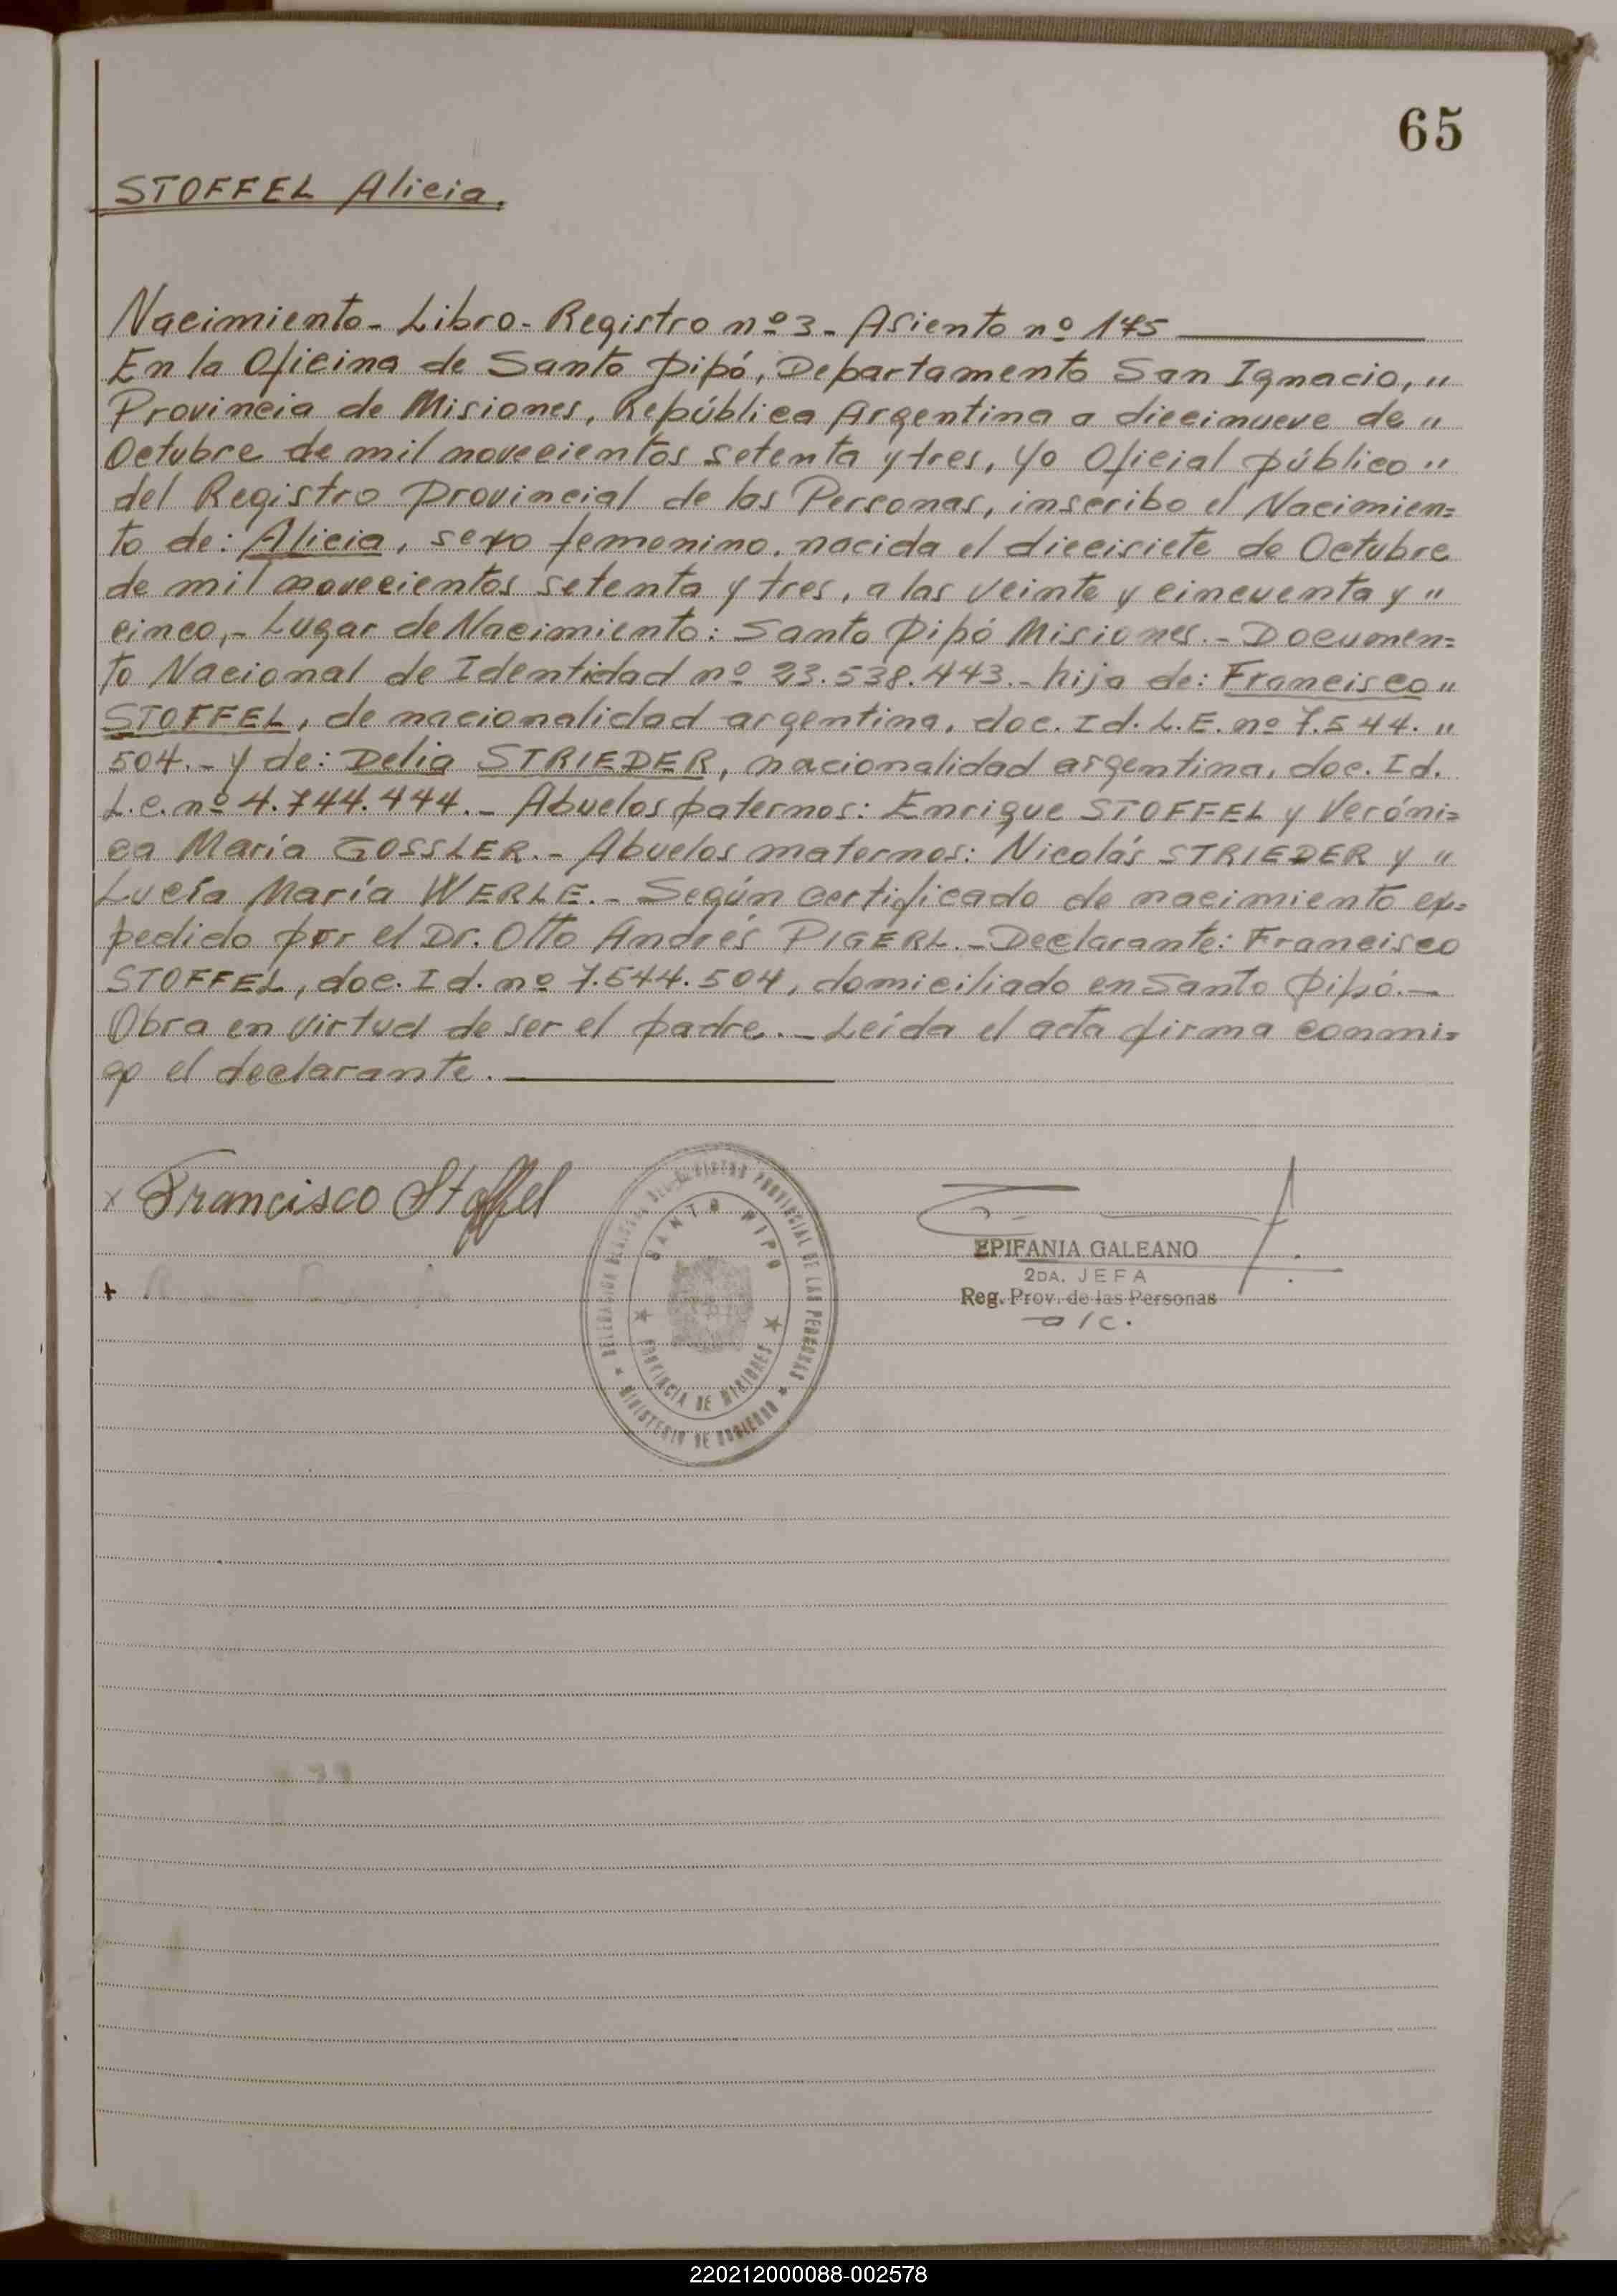 65
STOFFEL Alicia.
Nacimiento - Libro - Registro nº 3 - Asiento nº 175
En la Oficina de Santo Pipó, Departamento San Ignacio, "
Provincia de Misiones, República Argentina a diecinueve de "
Octubre de mil novecientos setenta y tres, yo Oficial público "
del Registro Provincial de las Personas, inscribo el Nacimien=
to de: Alicia, sexo femenino. nacida el diecisiete de Octubre
de mil novecientos setenta y tres, a las veinte y cincuenta y "
cinco,- Lugar de Nacimiento: Santo Pipó Misiones.- Documen=
to Nacional de Identidad nº 23.538.443.- hija de: Francisco "
STOFFEL, de nacionalidad argentina, doc. Id. L.E. nº 7.544. "
504.- y de: Delia STRIEDER, nacionalidad argentina, doc. Id.
L.c. nº 4.744.444.- Abuelos paternos: Enrique STOFFEL y Veróni=
ca María GOSSLER.- Abuelos maternos: Nicolás STRIEDER y "
Lucía María WERLE.- Según certificado de nacimiento ex=
pedido por el Dr. Otto Andrés PIGERL.- Declarante: Francisco
STOFFEL, doc. Id. nº 7.544.504, domiciliado en Santo Pipó.-
Obra en virtud de ser el padre.- Leída el acta firma conmi=
go el declarante.
x Francisco Stoffel
DEL REGISTRO PROVINCIAL DE LAS PERSONAS
SANTO PIPO
PROVINCIA DE MISIONES
MINISTERIO DE GOBIERNO
EPIFANIA GALEANO
2DA. JEFA
Reg. Prov. de las Personas
a/c.
220212000088-002578